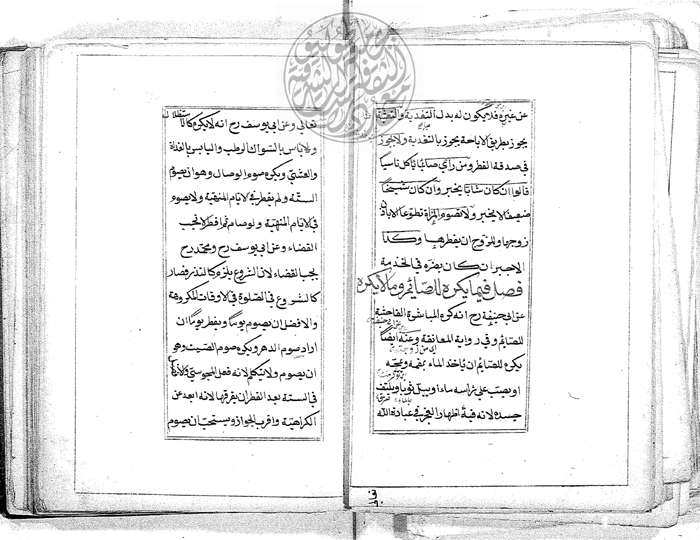 عن غيره فلا يكون له بدل التغدية والتعشية
يجوز بطريق الاباحة يجوز بالتغدية ولا يجوز
في صدقة الفطر ومن راى صائما ياكل ناسيا
قالوا ان كان شابا يخبر وان كان شيخا
ضعيفا لا يخبر ولا تصوم المرأة تطوعا الا باذن
زوجها وللزوج ان يفطرها وكذا
الاجير ان كان يضره في الخدمة
فصل فيما يكره للصائم وما لا يكره
عن ابي حنيفة رح انه كره المباشرة الفاحشة
للصائم وفي رواية المعانقة وعنه ايضا
يكره للصائم ان ياخذ الماء بفمه ويمجه
او يصب على راسه ماء او يبل ثوبا ويلتف
جسده لانه فيه اظهار العجز في عبادة الله
تعالى
تعالى وعن ابي يوسف رح انه لا يكره كالاستظلال
ولا باس بالسواك الرطب واليابس بالغداة
والعشي ويكره صوم الوصال وهو ان يصوم
السنة ولم يفطر في الايام المنهية ولا يصوم
في الايام المنهية ولو صام ثم افطر لا تجب
القضاء وعن ابي يوسف رح ومحمد رح
يجب القضاء لان الشروع يلزم كالنذر فصار
كالشروع في الصلوة في الاوقات المكروهة
والافضل ان يصوم يوما ويفطر يوما ان
اراد صوم الدهر ويكره صوم الصمت وهو
ان يصوم ولا يتكلم لانه فعل المجوسي
في الستة بعد الفطر ان يفرقها لانه ابعد عن
الكراهية واقرب للجواز ويستحب ان يصوم